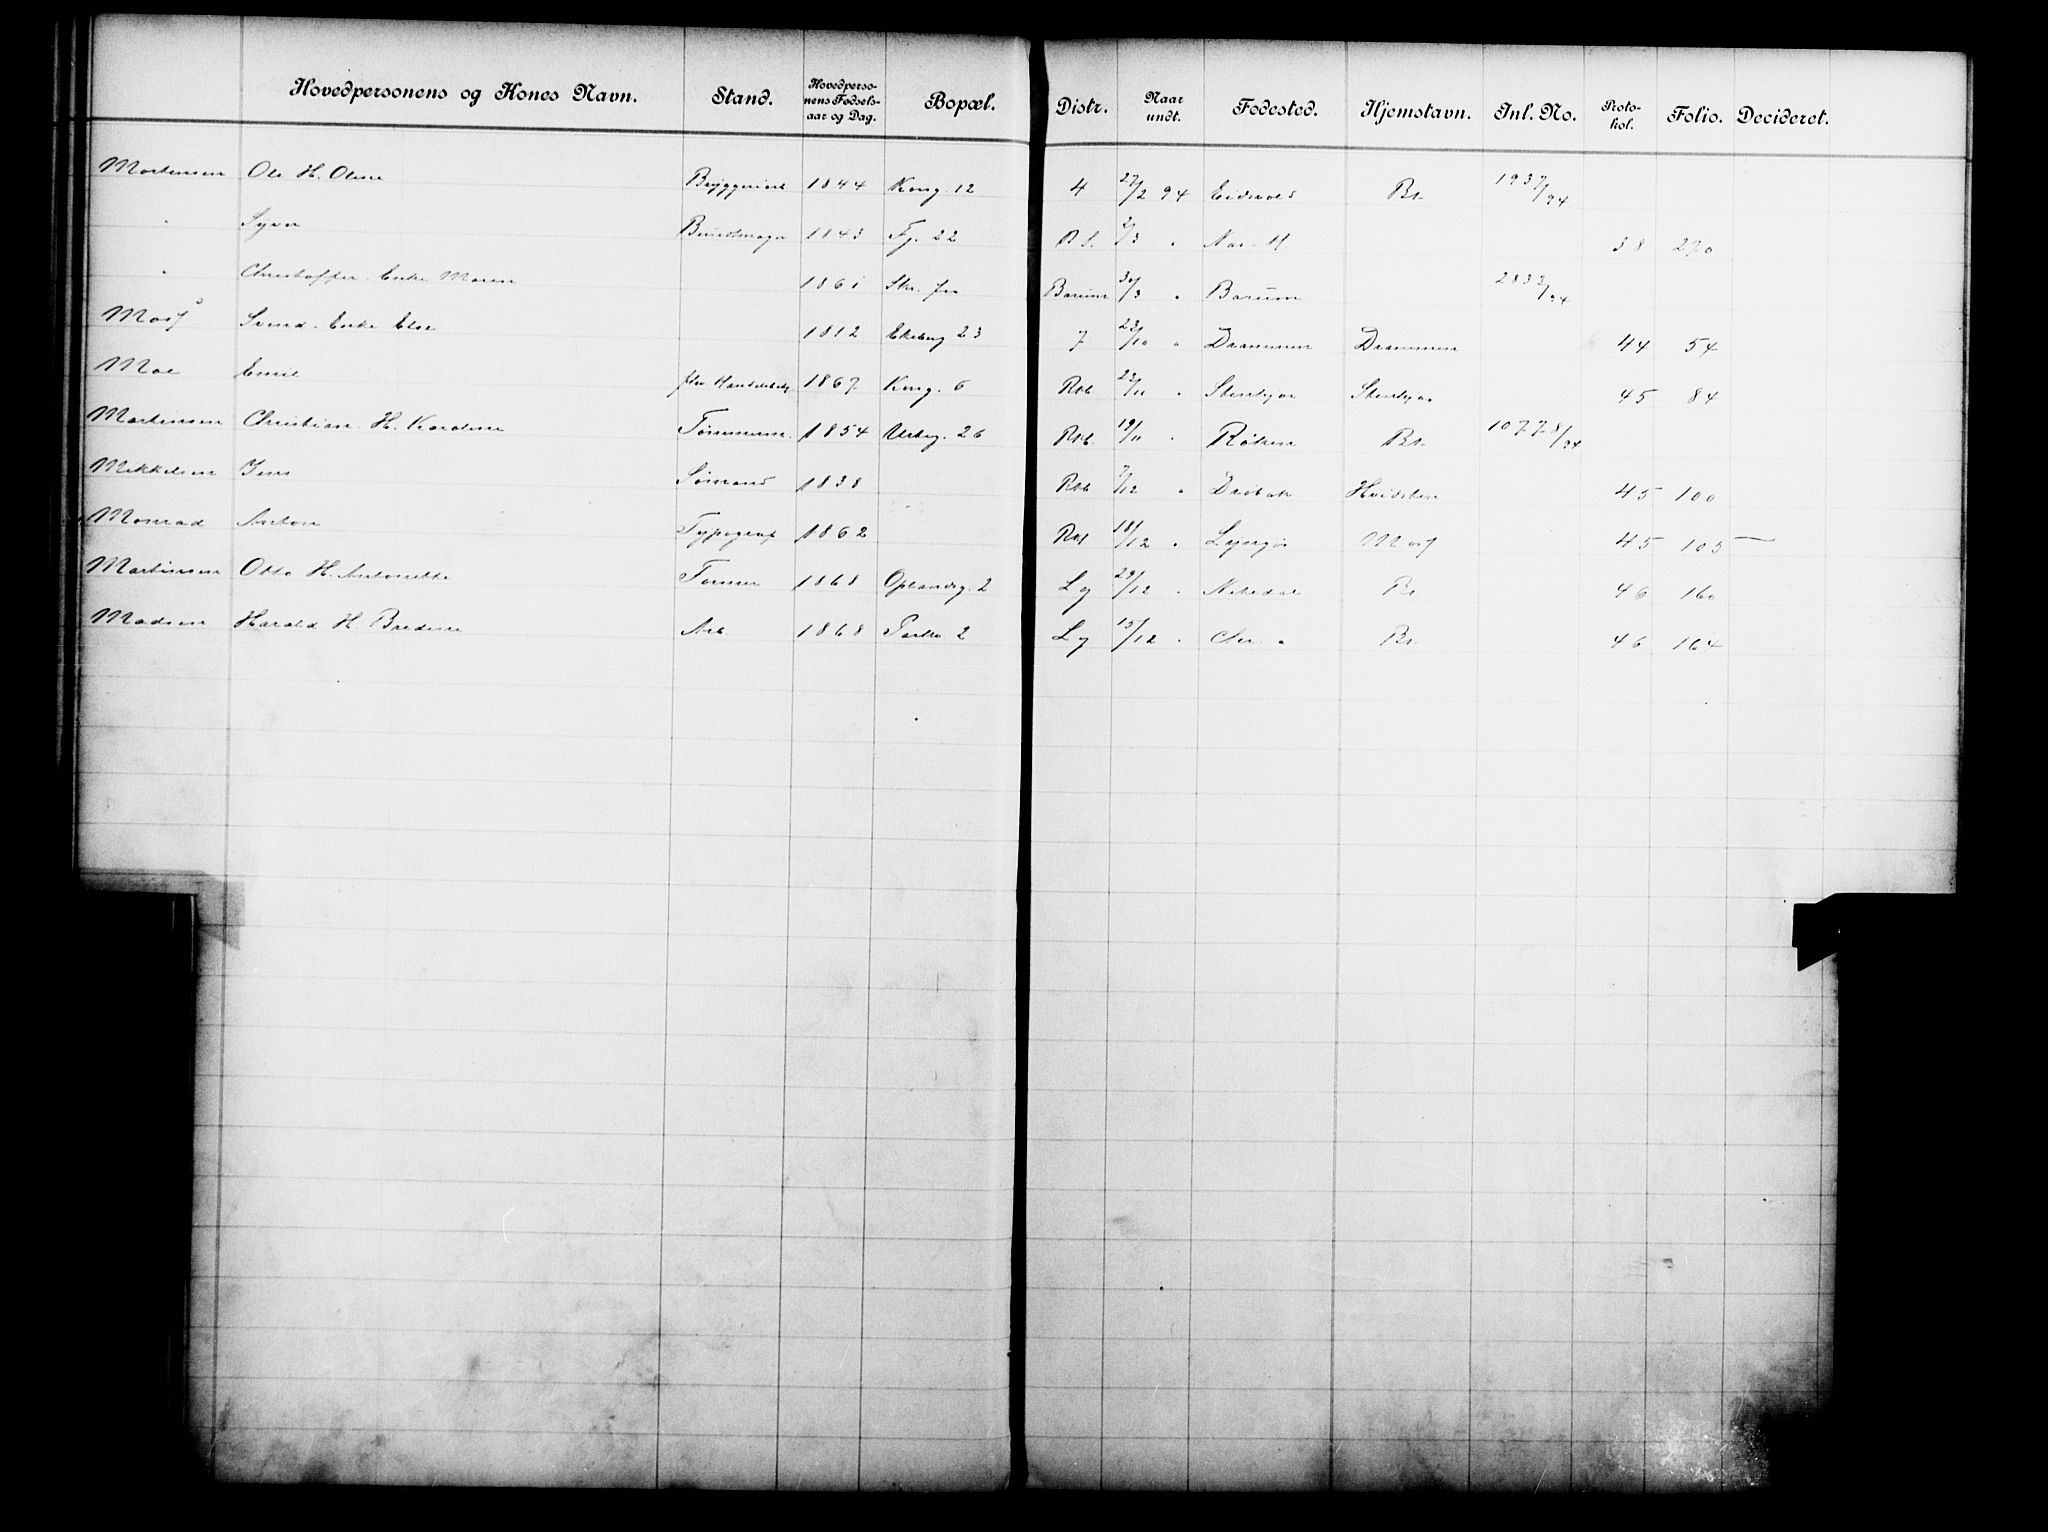 Hovedpersonens og Kones Navn. Stand. Hovedperso-nens Fødsels-aar og Dag. Bopæl. Distr. Naar undt. Fødested. Hjemstavn. Inl. No. Proto-kol. Folio. Decideret.
Mortensen Ole H. Oline 1844 Kong. 12 4 27/2 94 Eidsvold Bt. 1937/94
" Syver 1843 Fj. 22 2/3 " 38 270
" Christoffer Enke Maren 1861 Bærum 30/3 " Bærum 2832/94
Moss Svend Enke Else 1812 Ekeberg 23 7 23/10 " Drammen Drammen 44 54
Moe Emil 1867 Kong. 6 Rkb 22/11 " 45 84
Mortensen Christian H. Karoline Tømmerm. 1854 Urteg. 26 Rkb. 19/11 " Røken Bt. 10778/94
Mikkelsen Jens Sømand 1838 Rkb 7/12 " Drøbak Hvidsten 45 100
Monrad Anton Typograf 1862 18/12 " Lyngør Moss 45 103 —
Martinsen Otto H. Antonette 1868 Oplandsg. 2 Lg 29/12 " Nitedal Bt 46 160
Madsen Harald H. Bredine Arb. 1868 2 Lg 15/12 " Chr. a Bt. 46 164